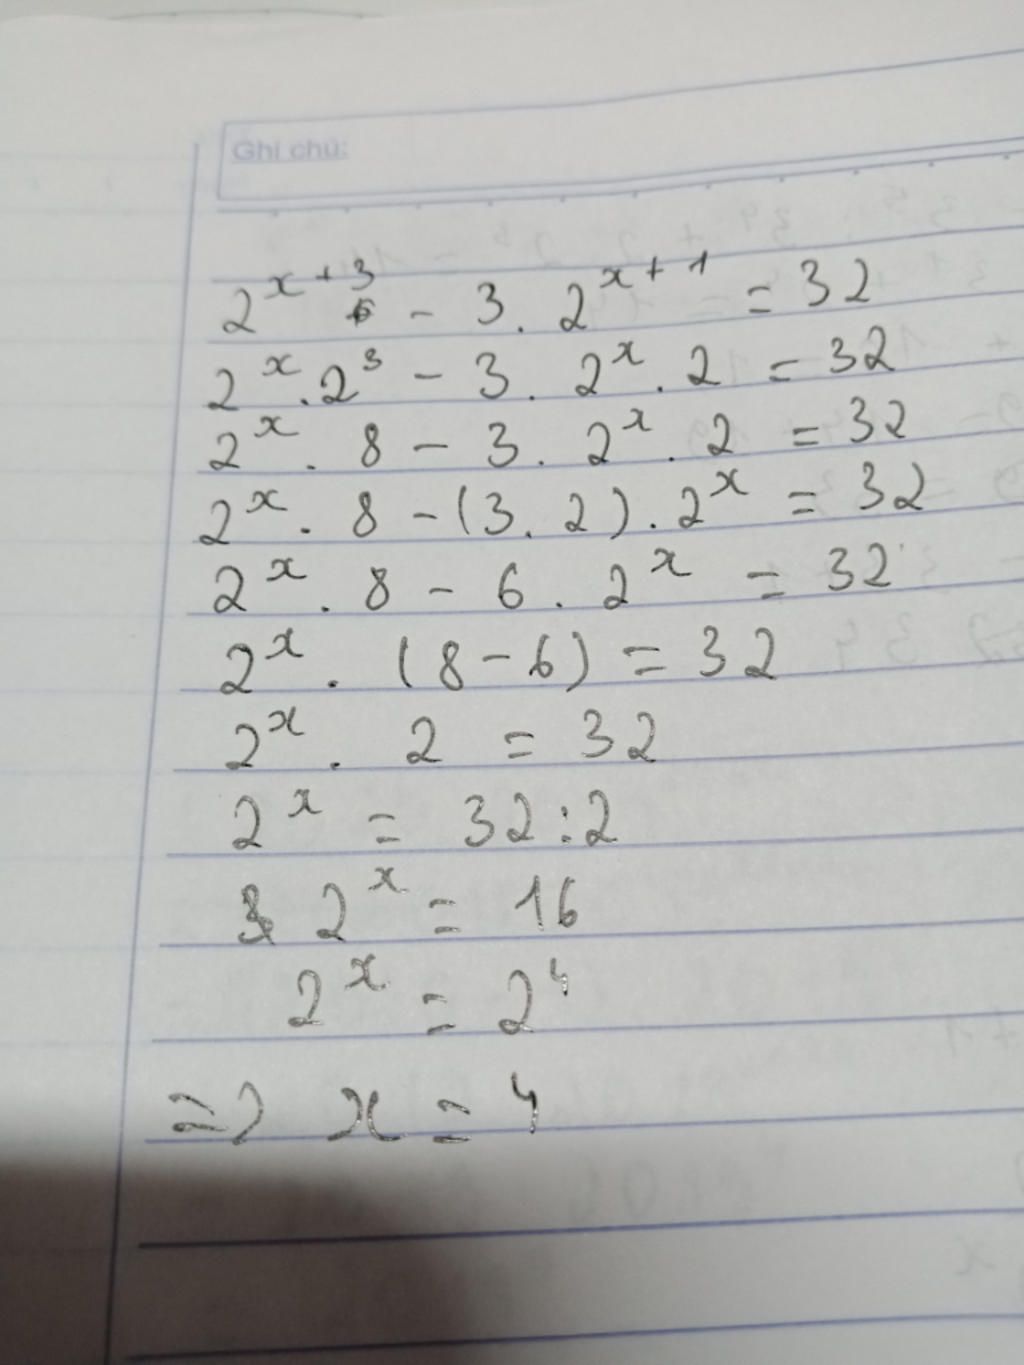 Ghi chú:
2^{x+3} - 3. 2^{x+1} = 32
2^x . 2^3 - 3. 2^x . 2 = 32
2^x . 8 - 3. 2^x . 2 = 32
2^x . 8 - (3. 2) . 2^x = 32
2^x . 8 - 6 . 2^x = 32
2^x . (8 - 6) = 32
2^x . 2 = 32
2^x = 32 : 2
2^x = 16
2^x = 2^4
=> x = 4